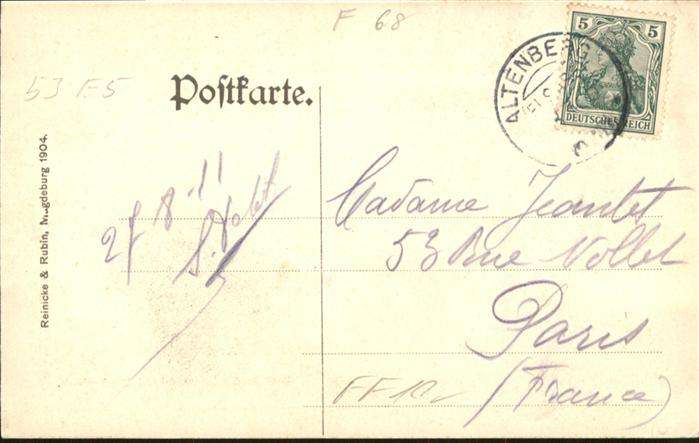 F 68
53 F5
Postkarte.
5 5
DEUTSCHES REICH
ALTENBERG
Reinicke & Rubin, Magdeburg 1904.
27 8 11
Madame Jeantet
53 Rue Nollet
Paris
(France)